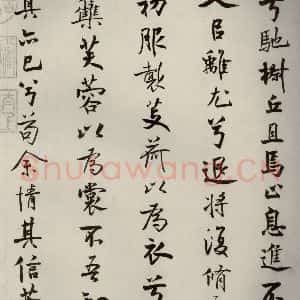 兮馳椒丘且焉止息進不
入㠯離尤兮退將復脩
初服製芰荷以為衣兮
集芙蓉以為裳不吾知
其亦已兮苟余情其信芳
Shufawang.CN